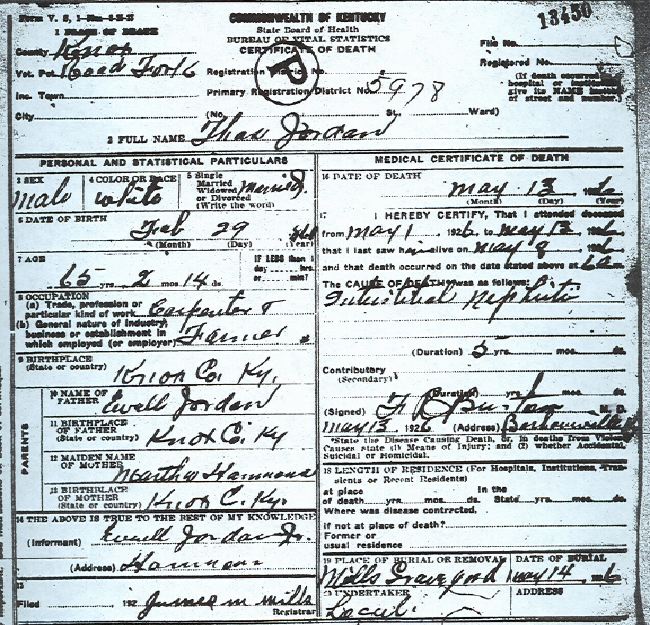 Form V. S. 1
COMMONWEALTH OF KENTUCKY
13450
1 PLACE OF DEATH
State Board of Health
BUREAU OF VITAL STATISTICS
CERTIFICATE OF DEATH
County Knox
File No.
Vot. Pct. Road Fork
Registration District No.
Registered No.
Inc. Town
Primary Registration District No. 5978
(If death occurred
hospital or
give its NAME
of street and number.)
City
(No. St. Ward)
P
2 FULL NAME Thad Jordan
PERSONAL AND STATISTICAL PARTICULARS
3 SEX
Male
4 COLOR OR RACE
White
5 Single
Married
Widowed
or Divorced
(Write the word)
Married
6 DATE OF BIRTH
Feb 29
(Month) (Day) (Year)
7 AGE
65 yrs. 2 mos. 14 ds.
IF LESS than 1
day hrs.
or min.?
8 OCCUPATION
(a) Trade, profession or
particular kind of work Carpenter &
(b) General nature of industry,
business or establishment in
which employed (or employer) Farmer
9 BIRTHPLACE
(State or country)
Knox Co. Ky.
PARENTS
10 NAME OF
FATHER
Ewell Jordan
11 BIRTHPLACE
OF FATHER
(State or country)
Knox C. Ky
12 MAIDEN NAME
OF MOTHER
Martha Hammons
13 BIRTHPLACE
OF MOTHER
(State or country)
Knox C. Ky.
14 THE ABOVE IS TRUE TO THE BEST OF MY KNOWLEDGE
(Informant) Ewell Jordan Jr.
(Address) Hammon
15
Filed 192
James M Mills
Registrar
MEDICAL CERTIFICATE OF DEATH
16 DATE OF DEATH
May 13
(Month) (Day) (Year)
17 I HEREBY CERTIFY, That I attended deceased
from May 1 1926 to May 13 1926
that I last saw him alive on May 9 1926
and that death occurred on the date stated above at 6 a m
The CAUSE OF DEATH was as follows:
Interstitial Nephritis
(Duration) 5 yrs. mos. ds.
Contributory
(Secondary)
(Duration) yrs. mos. ds.
(Signed) F R Burton M. D.
May 13 1926 (Address) Barbourville
*State the Disease Causing Death, or, in deaths from Violent
Causes state (1) Means of Injury; and (2) whether Accidental,
Suicidal or Homicidal.
18 LENGTH OF RESIDENCE (For Hospitals, Institutions, Tran-
sients or Recent Residents)
at place In the
of death yrs. mos. ds. State yrs. mos. ds.
Where was disease contracted,
if not at place of death?
Former or
usual residence
19 PLACE OF BURIAL OR REMOVAL
Mills Grave yard
DATE OF BURIAL
May 14 1926
20 UNDERTAKER
Local
ADDRESS